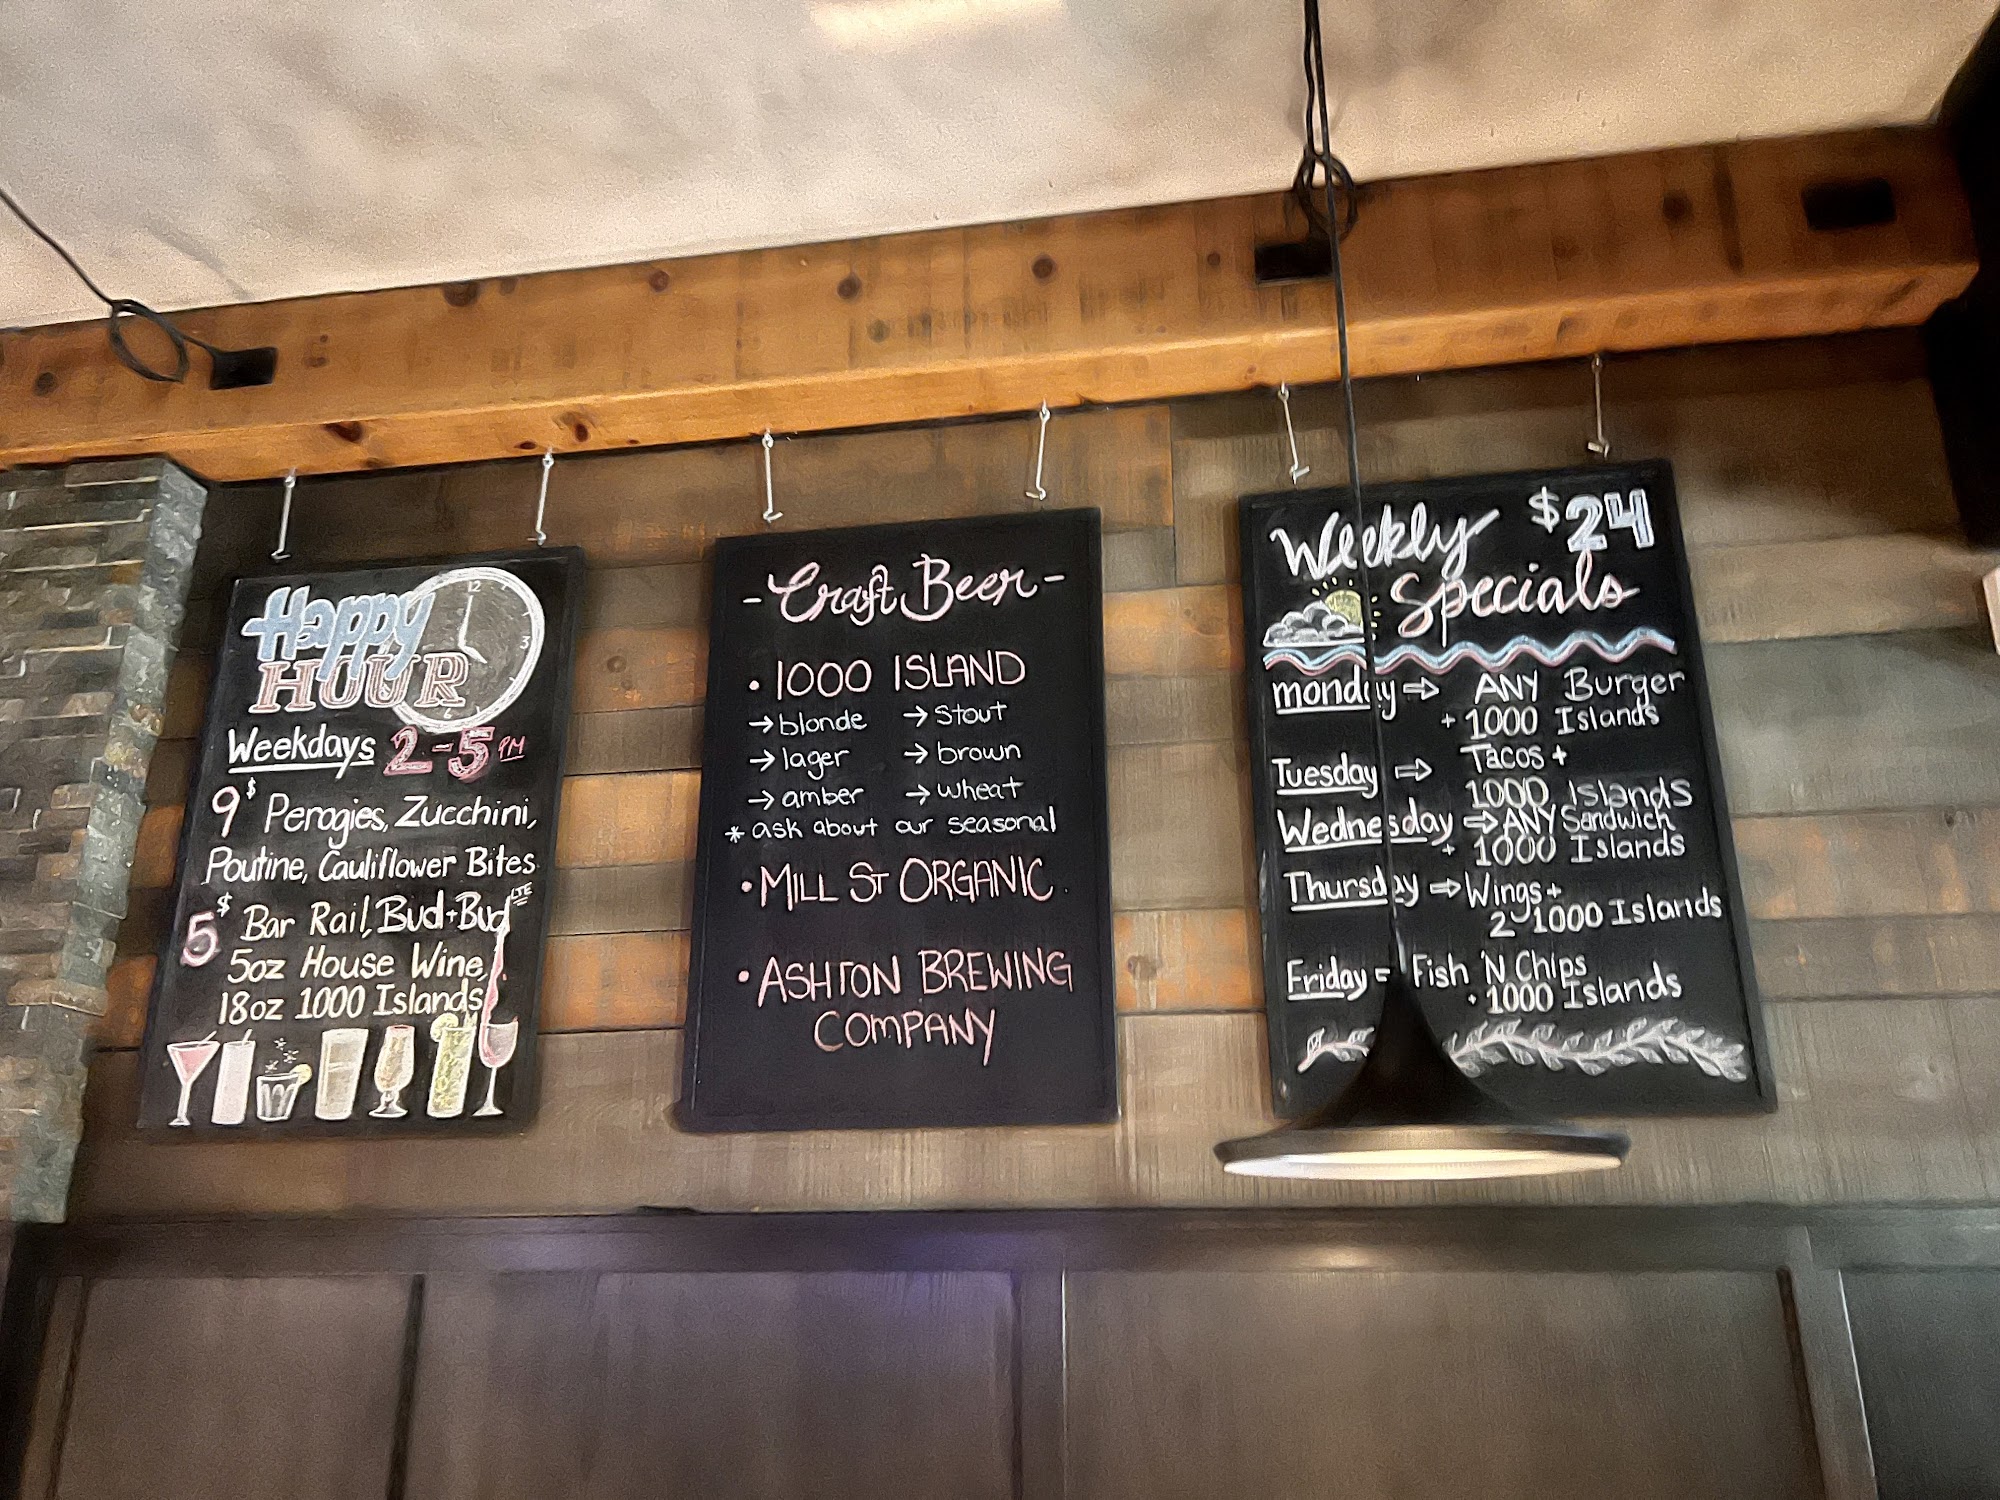 Happy
HOUR
12
3
6
Weekdays 2-5 PM
9$ Perogies, Zucchini,
Poutine, Cauliflower Bites
5$ Bar Rail, Bud + Bud LTE
5oz House Wine,
18oz 1000 Islands
- Craft Beer -
• 1000 ISLAND
→ blonde → stout
→ lager → brown
→ amber → wheat
* ask about our seasonal
• MILL ST ORGANIC
• ASHTON BREWING
COMPANY
Weekly $24
Specials
monday ⇒ ANY Burger
+ 1000 Islands
Tuesday ⇒ Tacos +
1000 Islands
Wednesday ⇒ ANY Sandwich
+ 1000 Islands
Thursday ⇒ Wings +
2 1000 Islands
Friday = Fish 'N Chips
• 1000 Islands